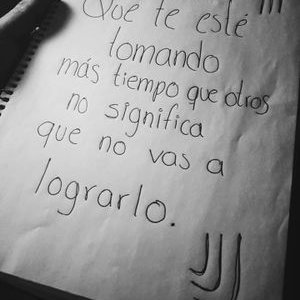 "Que te esté
tomando
más tiempo que otros
no significa
que no vas a
lograrlo.